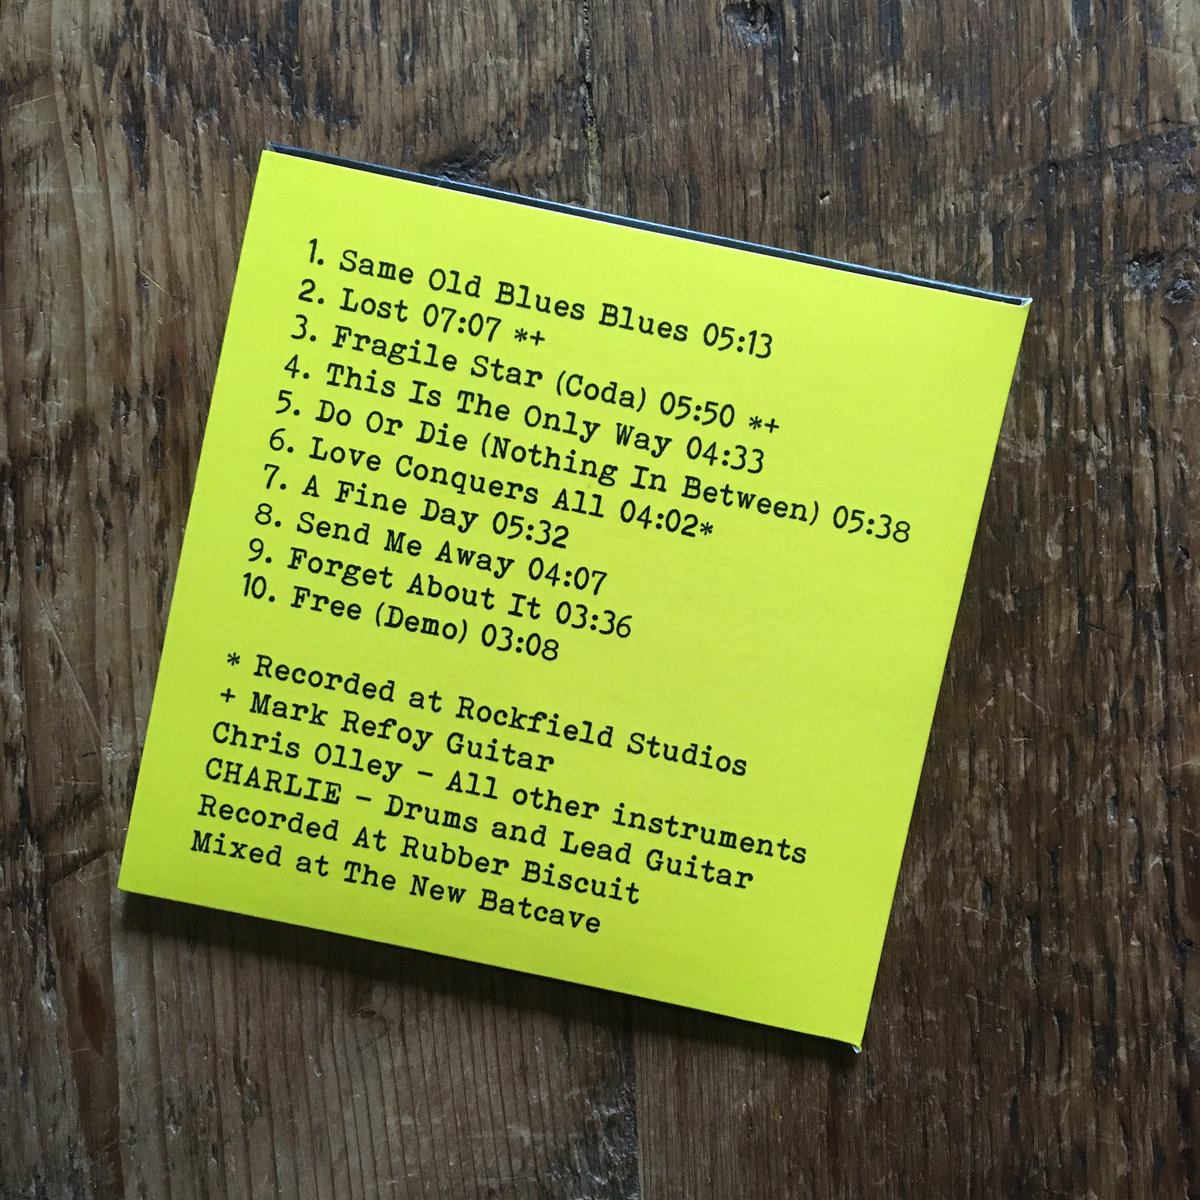 1. Same Old Blues Blues 05:13
2. Lost 07:07 *+
3. Fragile Star (Coda) 05:50 *+
4. This Is The Only Way 04:33
5. Do Or Die (Nothing In Between) 05:38
6. Love Conquers All 04:02*
7. A Fine Day 05:32
8. Send Me Away 04:07
9. Forget About It 03:36
10. Free (Demo) 03:08
* Recorded at Rockfield Studios
+ Mark Refoy Guitar
Chris Olley - All other instruments
CHARLIE - Drums and Lead Guitar
Recorded At Rubber Biscuit
Mixed at The New Batcave